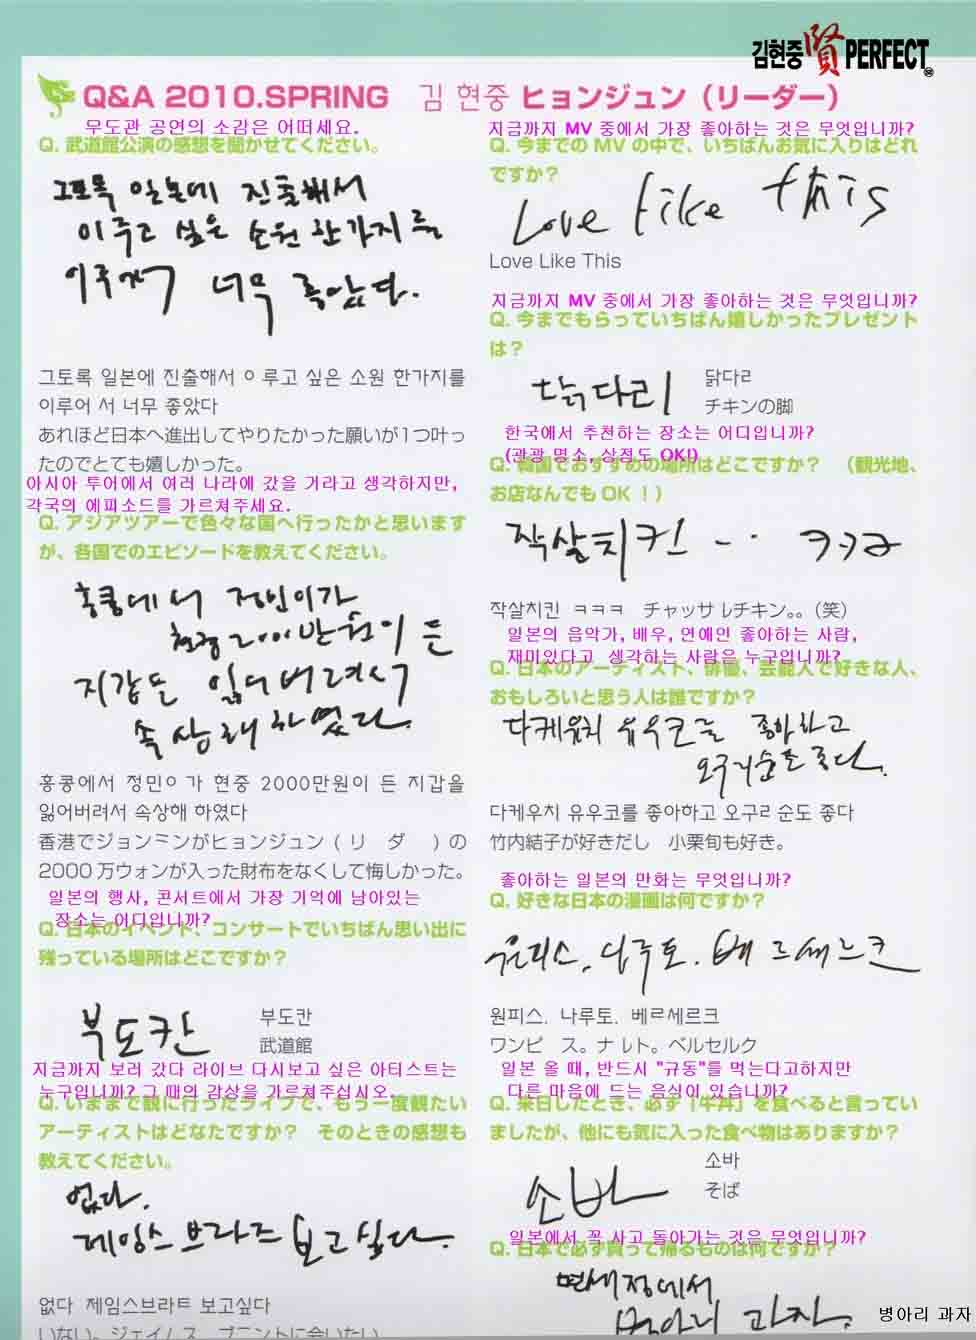 김현중賢 PERFECT
Q&A 2010.SPRING 김 현중 ヒョンジュン（リーダー）
무도관 공연의 소감은 어떠세요.
Q. 武道館公演の感想を聞かせてください。
그토록 일본데 진출해서
이루고 싶은 소원 한가지를
이루어서 너무 좋았다.
그토록 일본에 진출해서 ㅇ 루고 싶은 소원 한가지를
이루어 서 너무 좋았다
あれほど日本へ進出してやりたかった願いが1つ叶っ
たのでとても嬉しかった。
아시아 투어에서 여러 나라에 갔을 거라고 생각하지만,
각국의 에피소드를 가르쳐주세요.
Q. アジアツアーで色々な国へ行ったかと思います
が、各国でのエピソードを教えてください。
홍콩에서 정민이가
현중 2000만원이 든
지갑을 잃어버려서
속상해 하였다.
홍콩에서 정민ㅇ 가 현중 2000만원이 든 지갑을
잃어버려서 속상해 하였다
香港でジョンミンがヒョンジュン（ リ ダ ）の
2000 万ウォンが入った財布をなくして悔しかった。
일본의 행사, 콘서트에서 가장 기억에 남아있는
장소는 어디입니까?
Q. 日本のイベント、コンサートでいちばん思い出に
残っている場所はどこですか？
부도칸
부도칸
武道館
지금까지 보러 갔다 라이브 다시보고 싶은 아티스트는
누구입니까? 그 때의 감상을 가르쳐주십시오.
Q. いままで観に行ったライブで、もう一度観たい
アーティストはどなたですか？ そのときの感想も
教えてください。
없다.
제임스브라운 보고싶다.
없다 제임스브라ㅌ 보고싶다
いない。ジェイムス ブラントに会いたい
지금까지 MV 중에서 가장 좋아하는 것은 무엇입니까?
Q. 今までの MV の中で、いちばんお気に入りはどれ
ですか？
Love Like this
Love Like This
지금까지 MV 중에서 가장 좋아하는 것은 무엇입니까?
Q. 今までもらっていちばん嬉しかったプレゼント
は？
닭다리
닭다ㄹ
チキンの脚
한국에서 추천하는 장소는 어디입니까?
(관광 명소, 상점도 OK!)
Q. 韓国でおすすめの場所はどこですか？ （観光地、
お店なんでも OK ！）
작살치킨 ... ㅋㅋㅋ
작살치킨 ㅋㅋㅋ チャッサ レチキン。。（笑）
일본의 음악가, 배우, 연예인 좋아하는 사람,
재미있다고 생각하는 사람은 누구입니까?
Q. 日本のアーティスト、俳優、芸能人で好きな人、
おもしろいと思う人は誰ですか？
다케우치 유우코를 좋아하고
오구리순도 좋다.
다케우치 유우코를 좋아하고 오구ㄹ 순도 좋다
竹内結子が好きだし 小栗旬も好き。
좋아하는 일본의 만화는 무엇입니까?
Q. 好きな日本の漫画は何ですか？
원피스, 나루토. 베르세르크
원피스. 나루토. 베르세르크
ワンピ ス。ナ レト。ベルセルク
일본 올 때, 반드시 "규동"를 먹는다고하지만
다른 마음에 드는 음식이 있습니까?
Q. 来日したとき、必ず「牛丼」を食べると言ってい
ましたが、他にも気に入った食べ物はありますか？
소바
소바
そば
일본에서 꼭 사고 돌아가는 것은 무엇입니까?
Q. 日本で必ず買って帰るものは何ですか？
면세점에서
병아리 과자.
병아리 과자